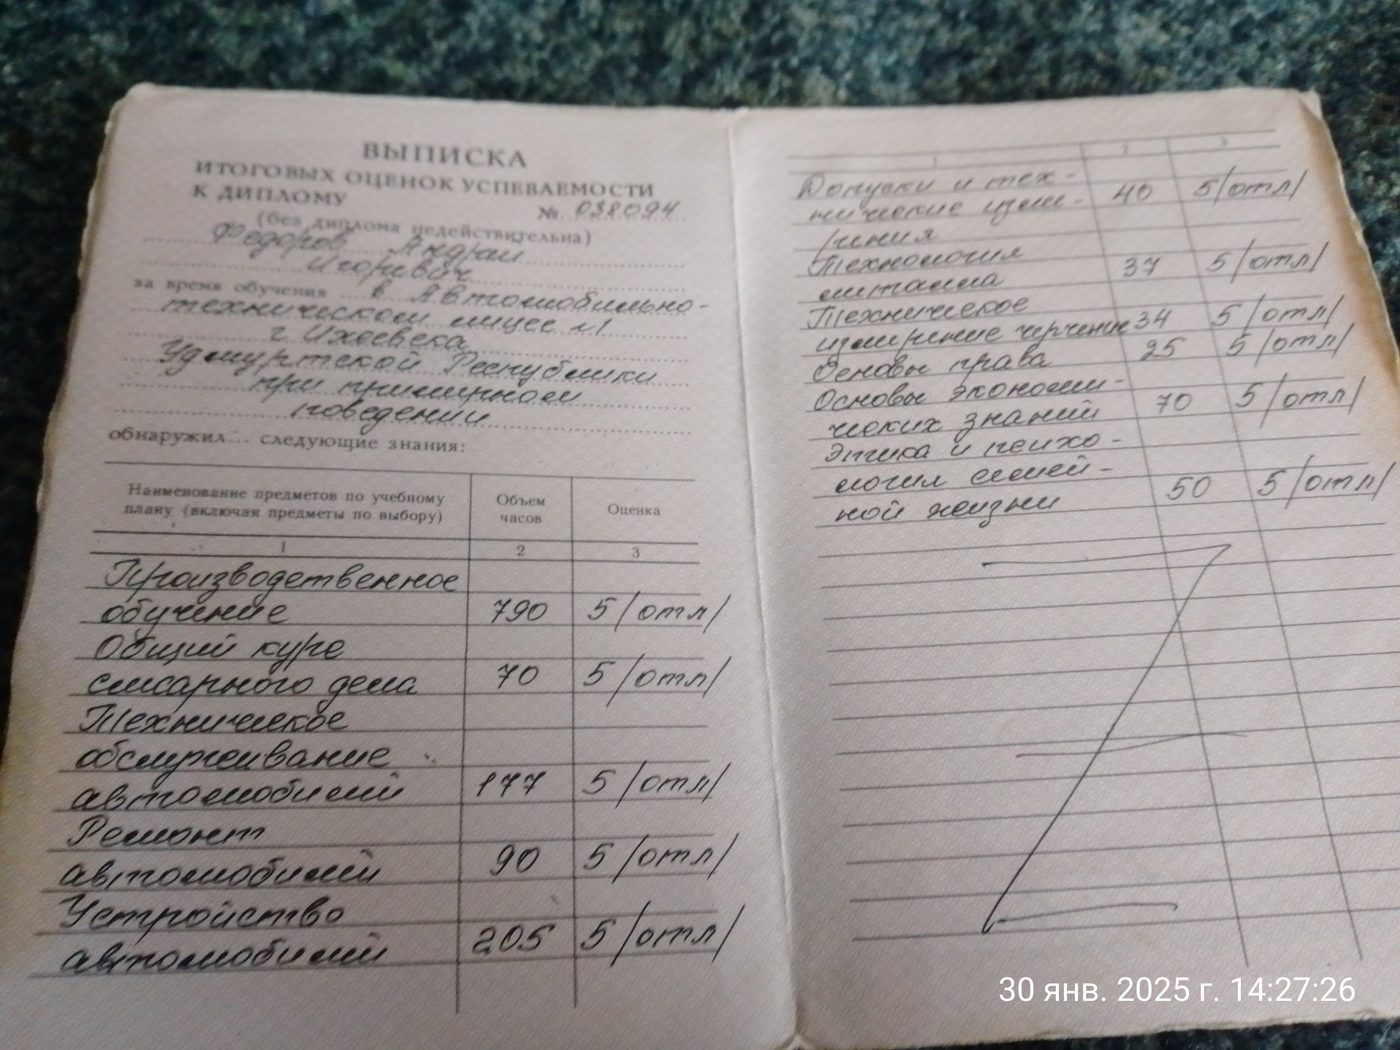 ВЫПИСКА
ИТОГОВЫХ ОЦЕНОК УСПЕВАЕМОСТИ
К ДИПЛОМУ № 038094
(без диплома недействительна)
Федоров Андрей
Игоревич
за время обучения в Автомобильно-
техническом лицее №1
г. Ижевска
Удмуртской Республики
при примерном
поведении
обнаружил... следующие знания:
Наименование предметов по учебному плану (включая предметы по выбору) Объем часов Оценка
1 2 3
Производственное
обучение 790 5 /отл/
Общий курс
слесарного дела 70 5 /отл/
Техническое
обслуживание
автомобилей 177 5 /отл/
Ремонт
автомобилей 90 5 /отл/
Устройство
автомобилей 205 5 /отл/
1 2 3
Допуски и тех-
нические изме- 40 5 /отл/
рения
Технология
металла 37 5 /отл/
Техническое
черчение 34 5 /отл/
Основы права 25 5 /отл/
Основы экономи-
ческих знаний 70 5 /отл/
Этика и психо-
логия семей-
ной жизни 50 5 /отл/
30 янв. 2025 г. 14:27:26